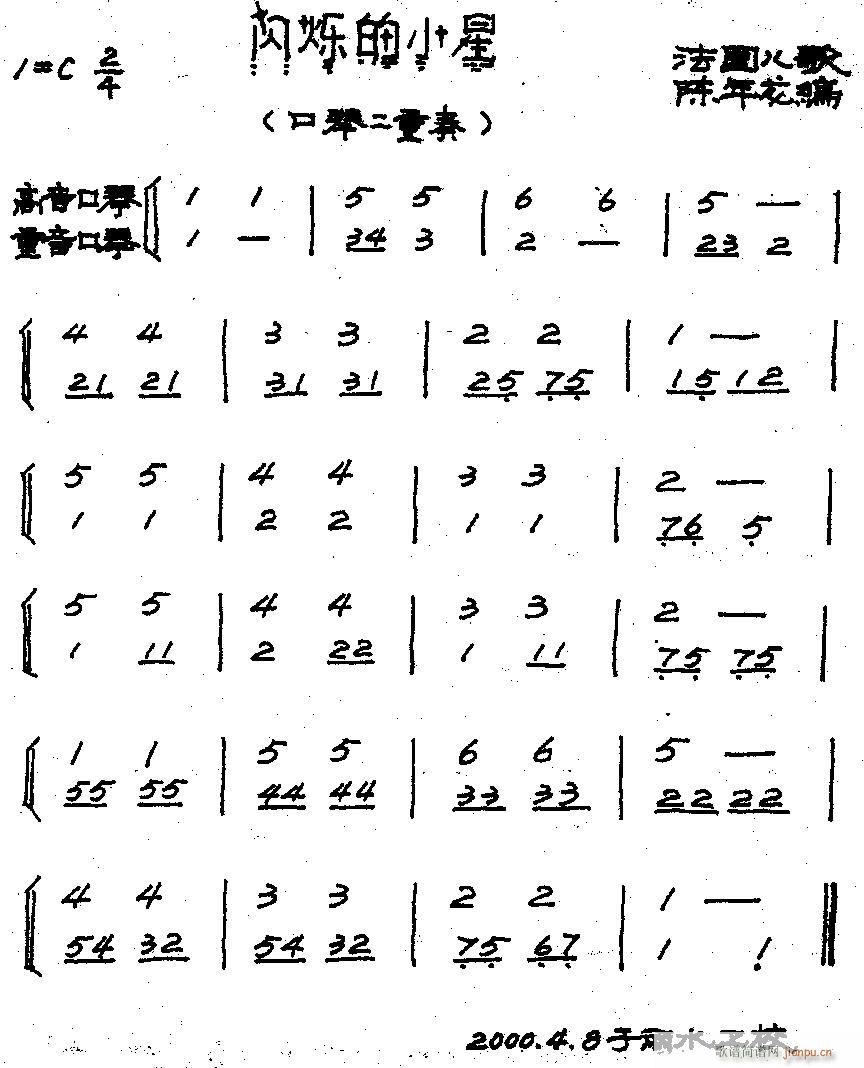 闪烁的小星
1=C 2/4
法国儿歌
陈年花编
（口琴二重奏）
高音口琴 1 1 | 5 5 | 6 6 | 5 — |
重音口琴 1 — | 34 3 | 2 — | 23 2 |
4 4 | 3 3 | 2 2 | 1 — |
21 21 | 31 31 | 25 75 | 15 12 |
5 5 | 4 4 | 3 3 | 2 — |
1 1 | 2 2 | 1 1 | 76 5 |
5 5 | 4 4 | 3 3 | 2 — |
1 11 | 2 22 | 1 11 | 75 75 |
1 1 | 5 5 | 6 6 | 5 — |
55 55 | 44 44 | 33 33 | 22 22 |
4 4 | 3 3 | 2 2 | 1 — ||
54 32 | 54 32 | 75 67 | 1 1 ||
2000.4.8于丽水
歌谱简谱网 jianpu.cn